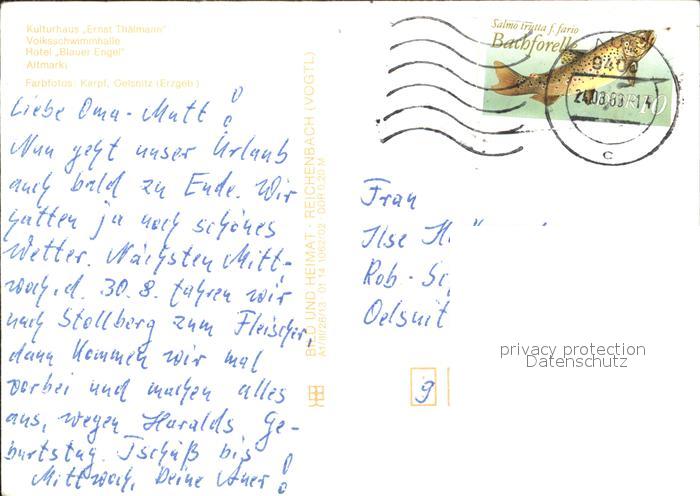 Kulturhaus „Ernst Thälmann"
Volksschwimmhalle
Hotel „Blauer Engel"
Altmarkt
Farbfotos: Karpf, Oelsnitz (Erzgeb.)
Liebe Oma-Mutt!
Nun geht unser Urlaub
auch bald zu Ende. Wir
hatten ja noch schönes
Wetter. Nächsten Mitt-
woch, d. 30.8. fahren wir
nach Stollberg zum Fleischer,
dann kommen wir mal
vorbei und machen alles
aus, wegen Haralds Ge-
burtstag. Tschüß bis
Mittwoch, Deine
BILD UND HEIMAT · REICHENBACH (VOGTL)
A1/III/26/13 01 14 1062/02 DDR 0,20 M
Salmo trutta f. fario
Bachforelle
DDR 10
9400
24.08.89-14
c
Frau
Ilse H.
Rob.-Sc
Oelsnit
9
privacy protection
Datenschutz